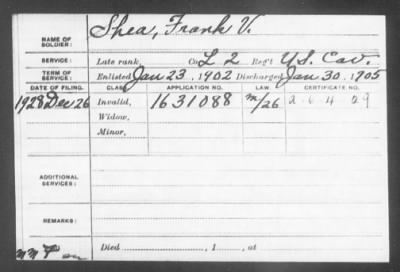 NAME OF SOLDIER: Shea, Frank V.
SERVICE: Late rank, Co. L 2 Reg't U.S. Cav.
TERM OF SERVICE: Enlisted Jan 23, 1902 Discharged Jan 30, 1905
DATE OF FILING. CLASS. APPLICATION NO. LAW. CERTIFICATE NO.
1928 Dec 26 Invalid, 1631088 m/26
Widow,
Minor,
ADDITIONAL SERVICES:
REMARKS:
Died , 1 , at